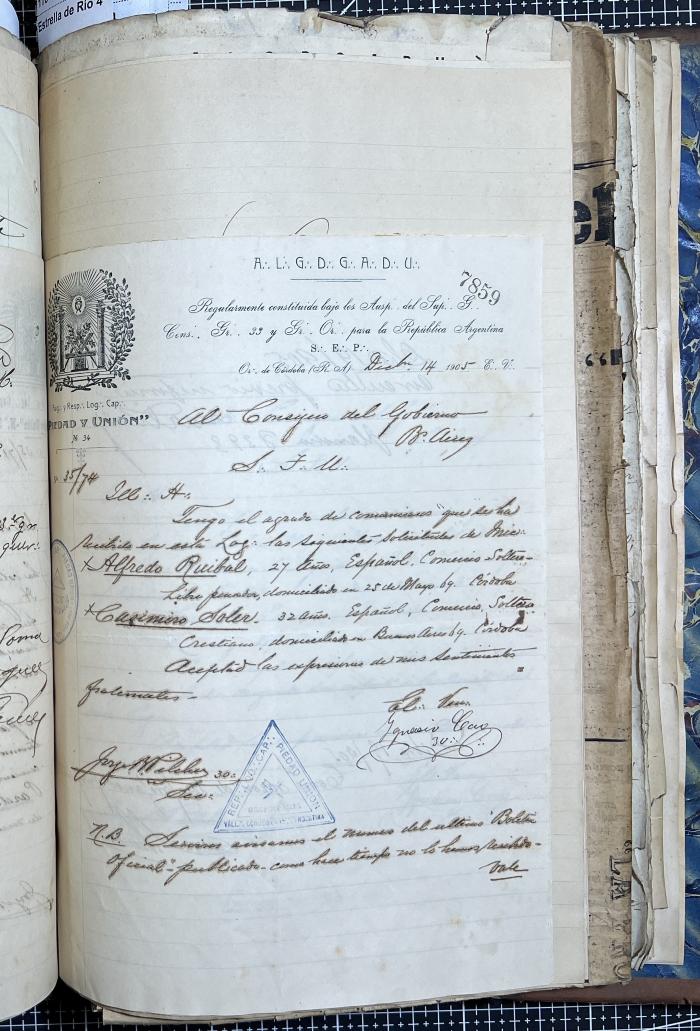 Estrella de Rio 4°
A∴ L∴ G∴ D∴ G∴ A∴ D∴ U∴
7859
Regularmente constituida bajo los Ausp∴ del Sup∴ G∴
Cons∴ Gr∴ 33 y Gr∴ Or∴ para la República Argentina
S∴ E∴ P∴
Or∴ de Córdoba (R. A.) Dicbre 14 1905 E∴ V∴
y Resp∴ Log∴ Cap∴
"PIEDAD Y UNIÓN"
№ 34
35/74
Al Consejo del Gobierno
Bs Aires
S∴ F∴ U∴
Ill∴ H∴
Tengo el agrado de comunicaros que se ha
recibido en esta Log∴ las siguientes solicitudes de Inic∴
x Alfredo Ruibal, 27 Años, Español, Comercio Soltero-
Libre pensador, domiciliado en 25 de Mayo 69. Córdoba
x Casimiro Soler. 32 años. Español, Comercio, Soltero
Cristiano, domiciliado en Buenos Aires 69. Córdoba
Aceptad las expresiones de mis sentimientos
fraternales-
El∴ Ven∴
Ignacio
30∴
Jorge B. Pilcher 30∴
Sec∴
RESP∴ LOG∴ CAP∴ PIEDAD UNION
N.B. Serviros avisarnos el numero del ultimo "Boletin
Oficial" publicado-como hace tiempo no lo hemos recibido-
Vale